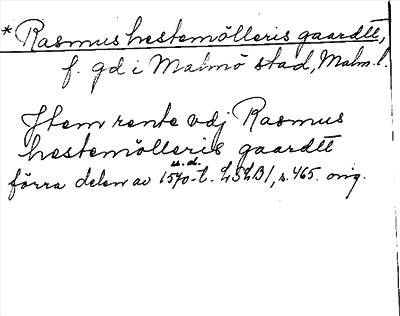 * Rasmus hestemölleris gaardtt,
f. gd i Malmö stad, Malm.l.
Item rente vdj Rasmus
hestemölleris gaardtt
u.d.
förra delen av 1570-t. LSLB1, s. 465. orig.